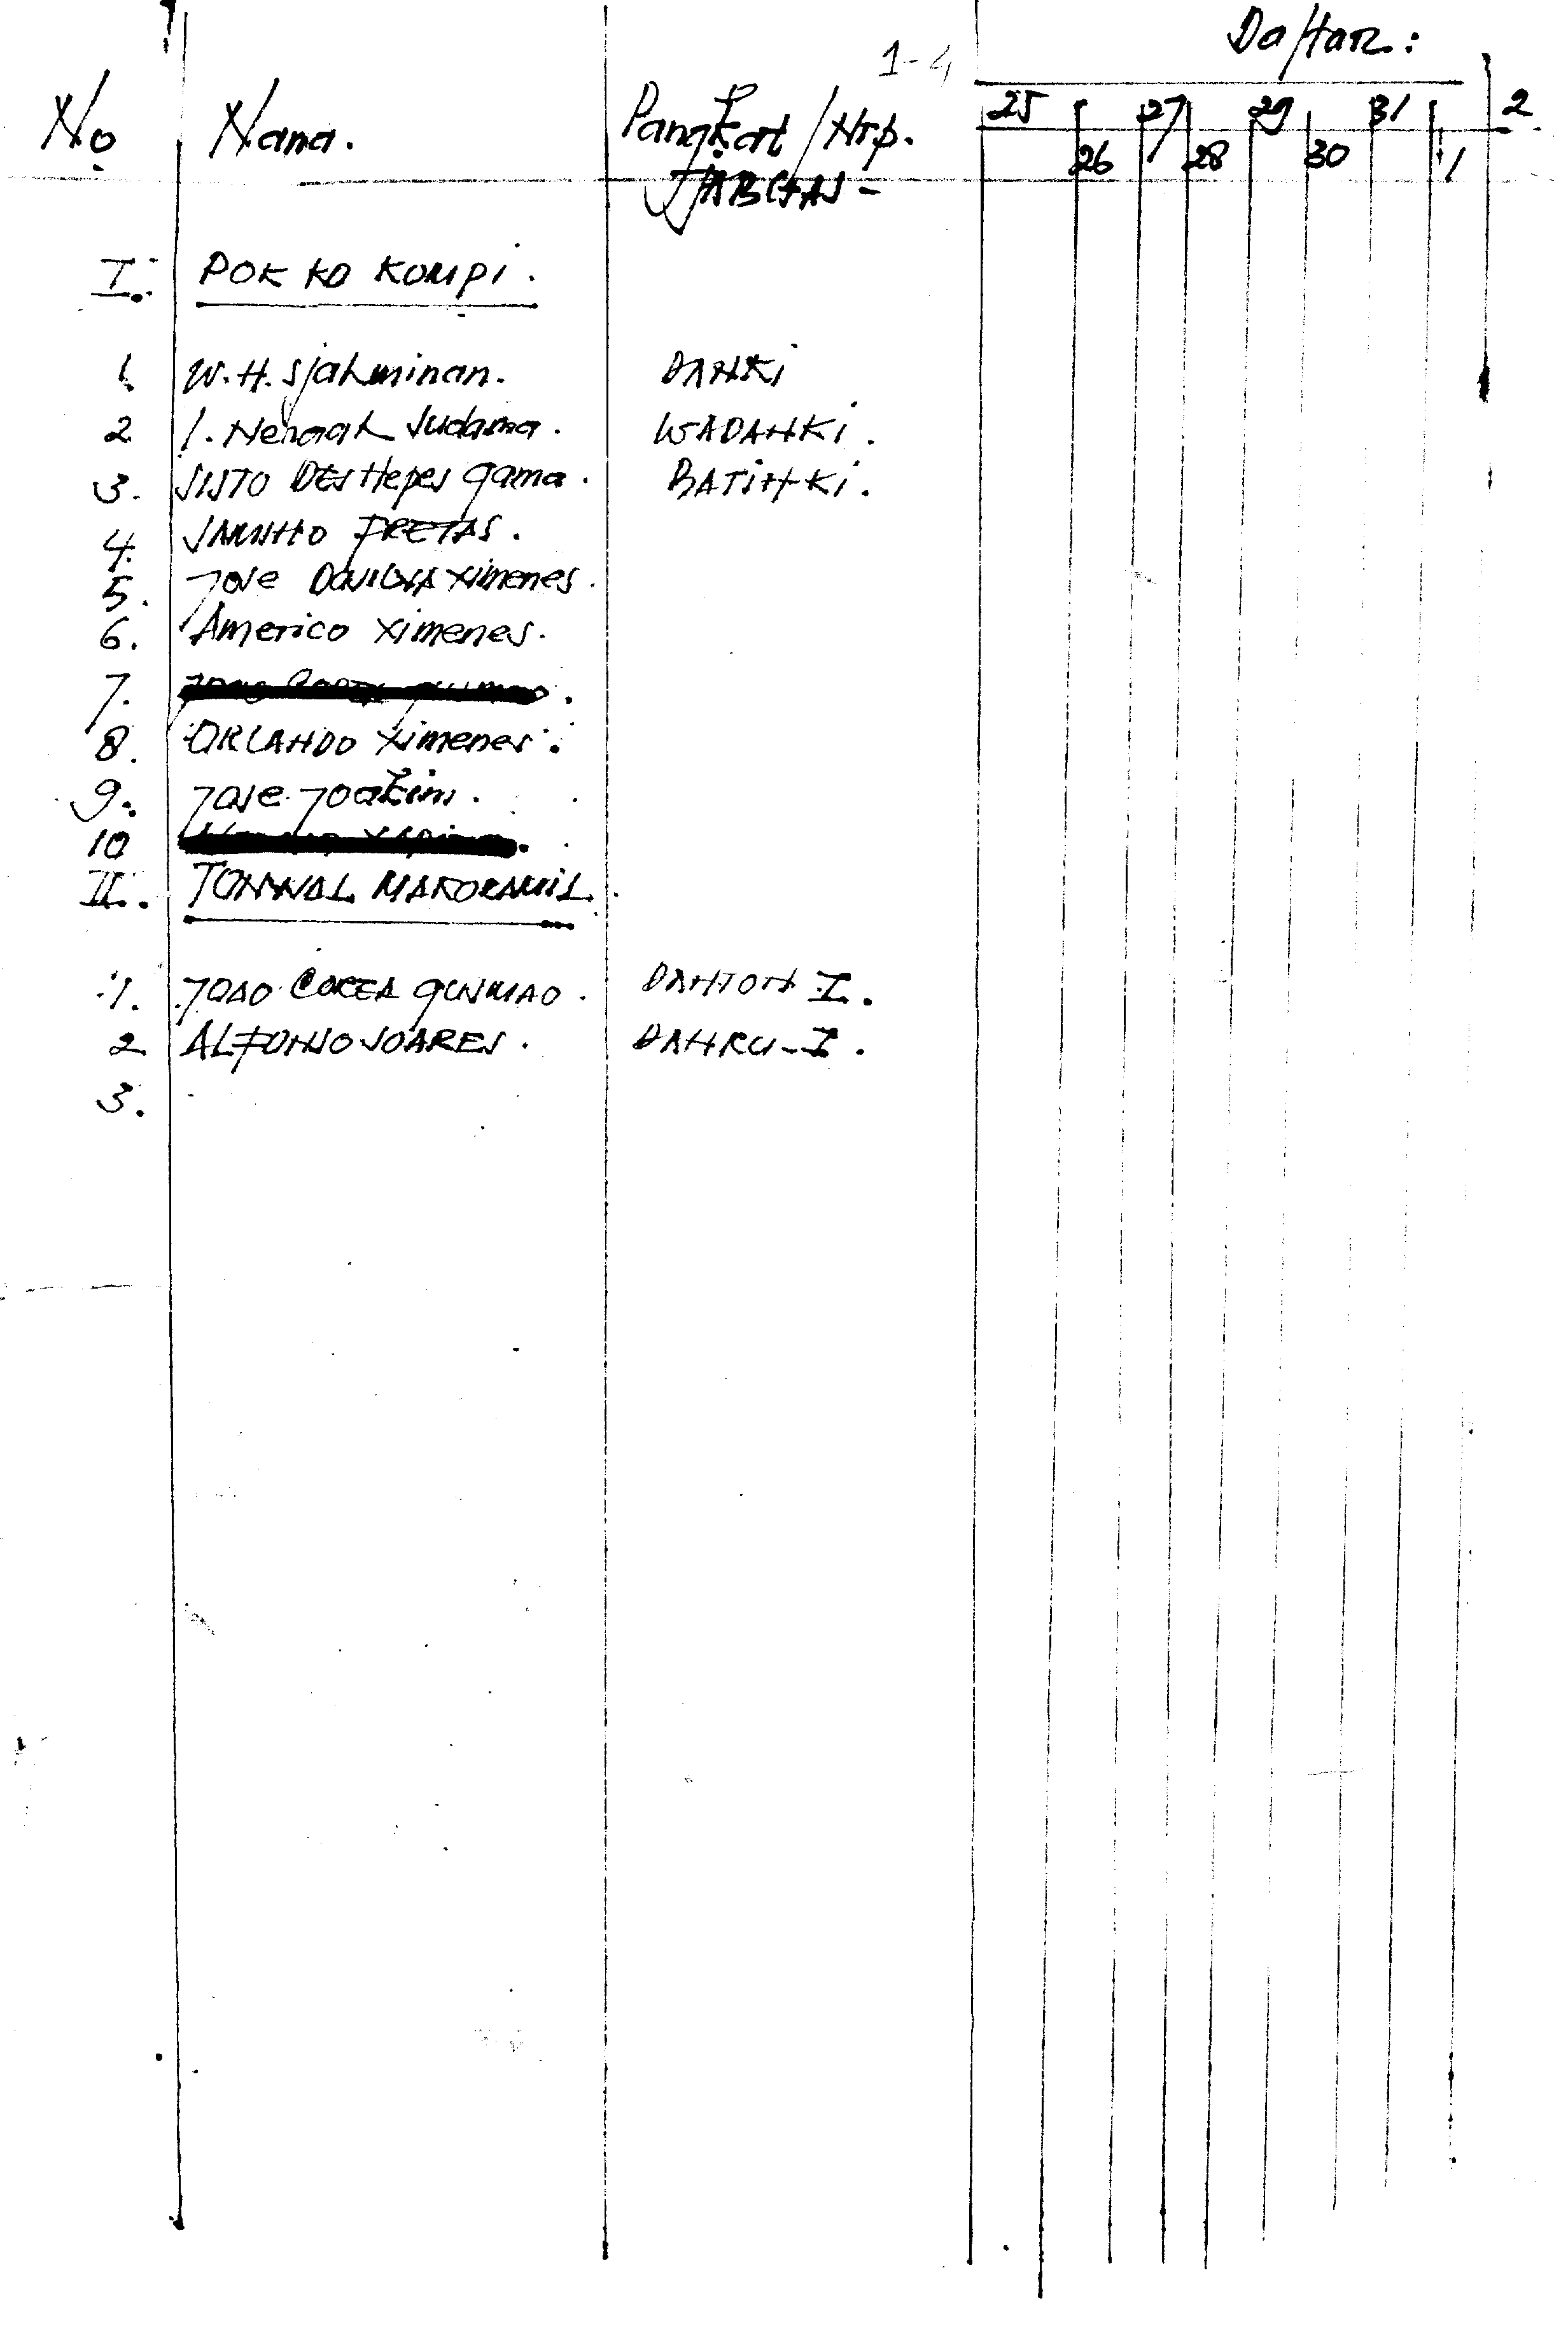 Daftar:
1-4
No Nama. Pangkat/Nrp. 25 26 27 28 29 30 31 1 2
JABATAN-
I. POK KO KOMPI.
1. W.H. Sjahminan. DANKI
2 I. Nengah Sudama. WADANKI.
3. SISTO DES Neves gama. BATINKI.
4. FRETAS.
5. Jose Ximenes.
6. Americo Ximenes.
7.
8. ORLANDO Ximenes.
9. Jose Joakim.
10
II. TONWAL MAKORAMIL.
1. JOAO COREA GUSMAO. DANTON I.
2 ALFONSO SOARES. DANRU-I.
3.